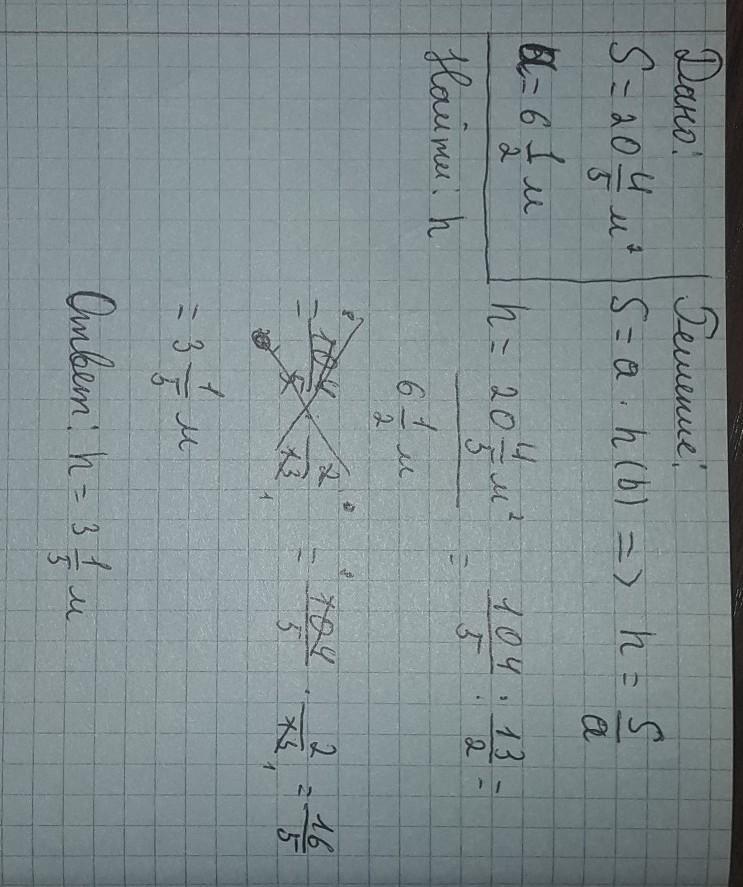 Дано:
S = 20 4/5 м²
a = 6 1/2 м
Найти: h
Решение:
S = a · h(b) => h = S/a
h = 20 4/5 м² / 6 1/2 м = 104/5 : 13/2 =
= 104/5 · 2/13 = 104/5 · 2/13 = 16/5
8 1 8 1
= 3 1/5 м
Ответ: h = 3 1/5 м